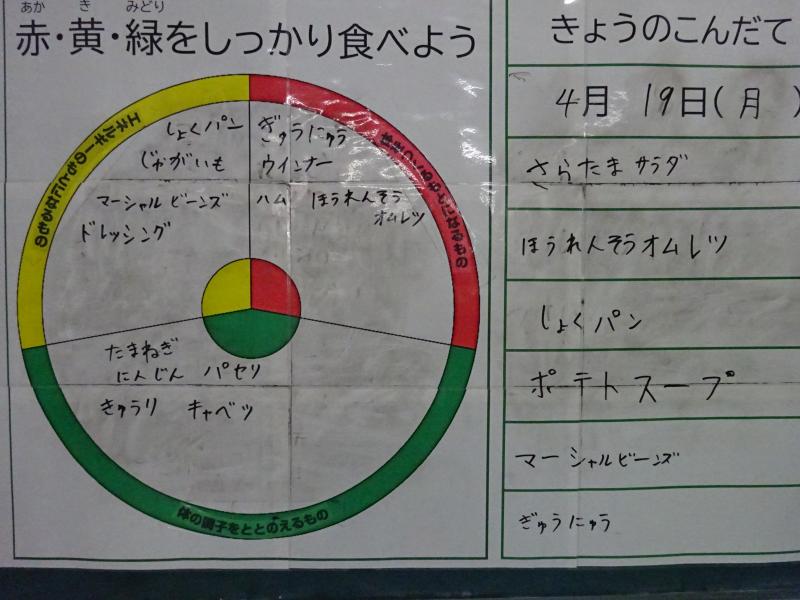 あか き みどり
赤・黄・緑をしっかり食べよう
エネルギーのもとになるもの
しょくパン
じゃがいも
マーシャル ビーンズ
ドレッシング
体をつくるもとになるもの
ぎゅうにゅう
ウインナー
ハム ほうれんそう
オムレツ
たまねぎ
にんじん パセリ
きゅうり キャベツ
体の調子をととのえるもの
きょうのこんだて
4月 19日(月)
さらたまサラダ
ほうれんそうオムレツ
しょくパン
ポテトスープ
マーシャルビーンズ
ぎゅうにゅう